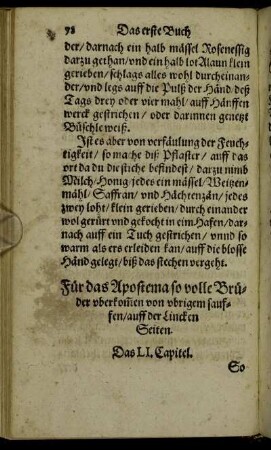 78 Das erste Buch
der/ darnach ein halb mässel Rosenessig
darzu gethan/ vnd ein halb lot Alaun klein
gerieben/ schlags alles wohl durcheinan-
der/ vnd legs auff die Pulß der Händ/ deß
Tags drey oder vier mahl/ auff Hänffen
werck gestrichen/ oder darinnen genetzt
Büschle weiß.
Ist es aber von verfäulung der Feuch-
tigkeit/ so mache diß Pflaster/ auff das
ort da du die stiche befindest/ darzu nimb
Milch/ Honig jedes ein mässel/ Weitzen-
mähl/ Saffran/ vnd Hächtenzän/ jedes
zwey loht/ klein gerieben/ durch einander
wol gerürt vnd gekocht in eim Hafen/ dar-
nach auff ein Tuch gestrichen/ vnnd so
warm als ers erleiden kan/ auff die blosse
Händ gelegt/ biß das stechen vergeht.
Für das Apostema so volle Brü-
der vberkom̃en von vbrigem sauf-
fen/ auff der Lincken
Seiten.
Das LI. Capitel.
So